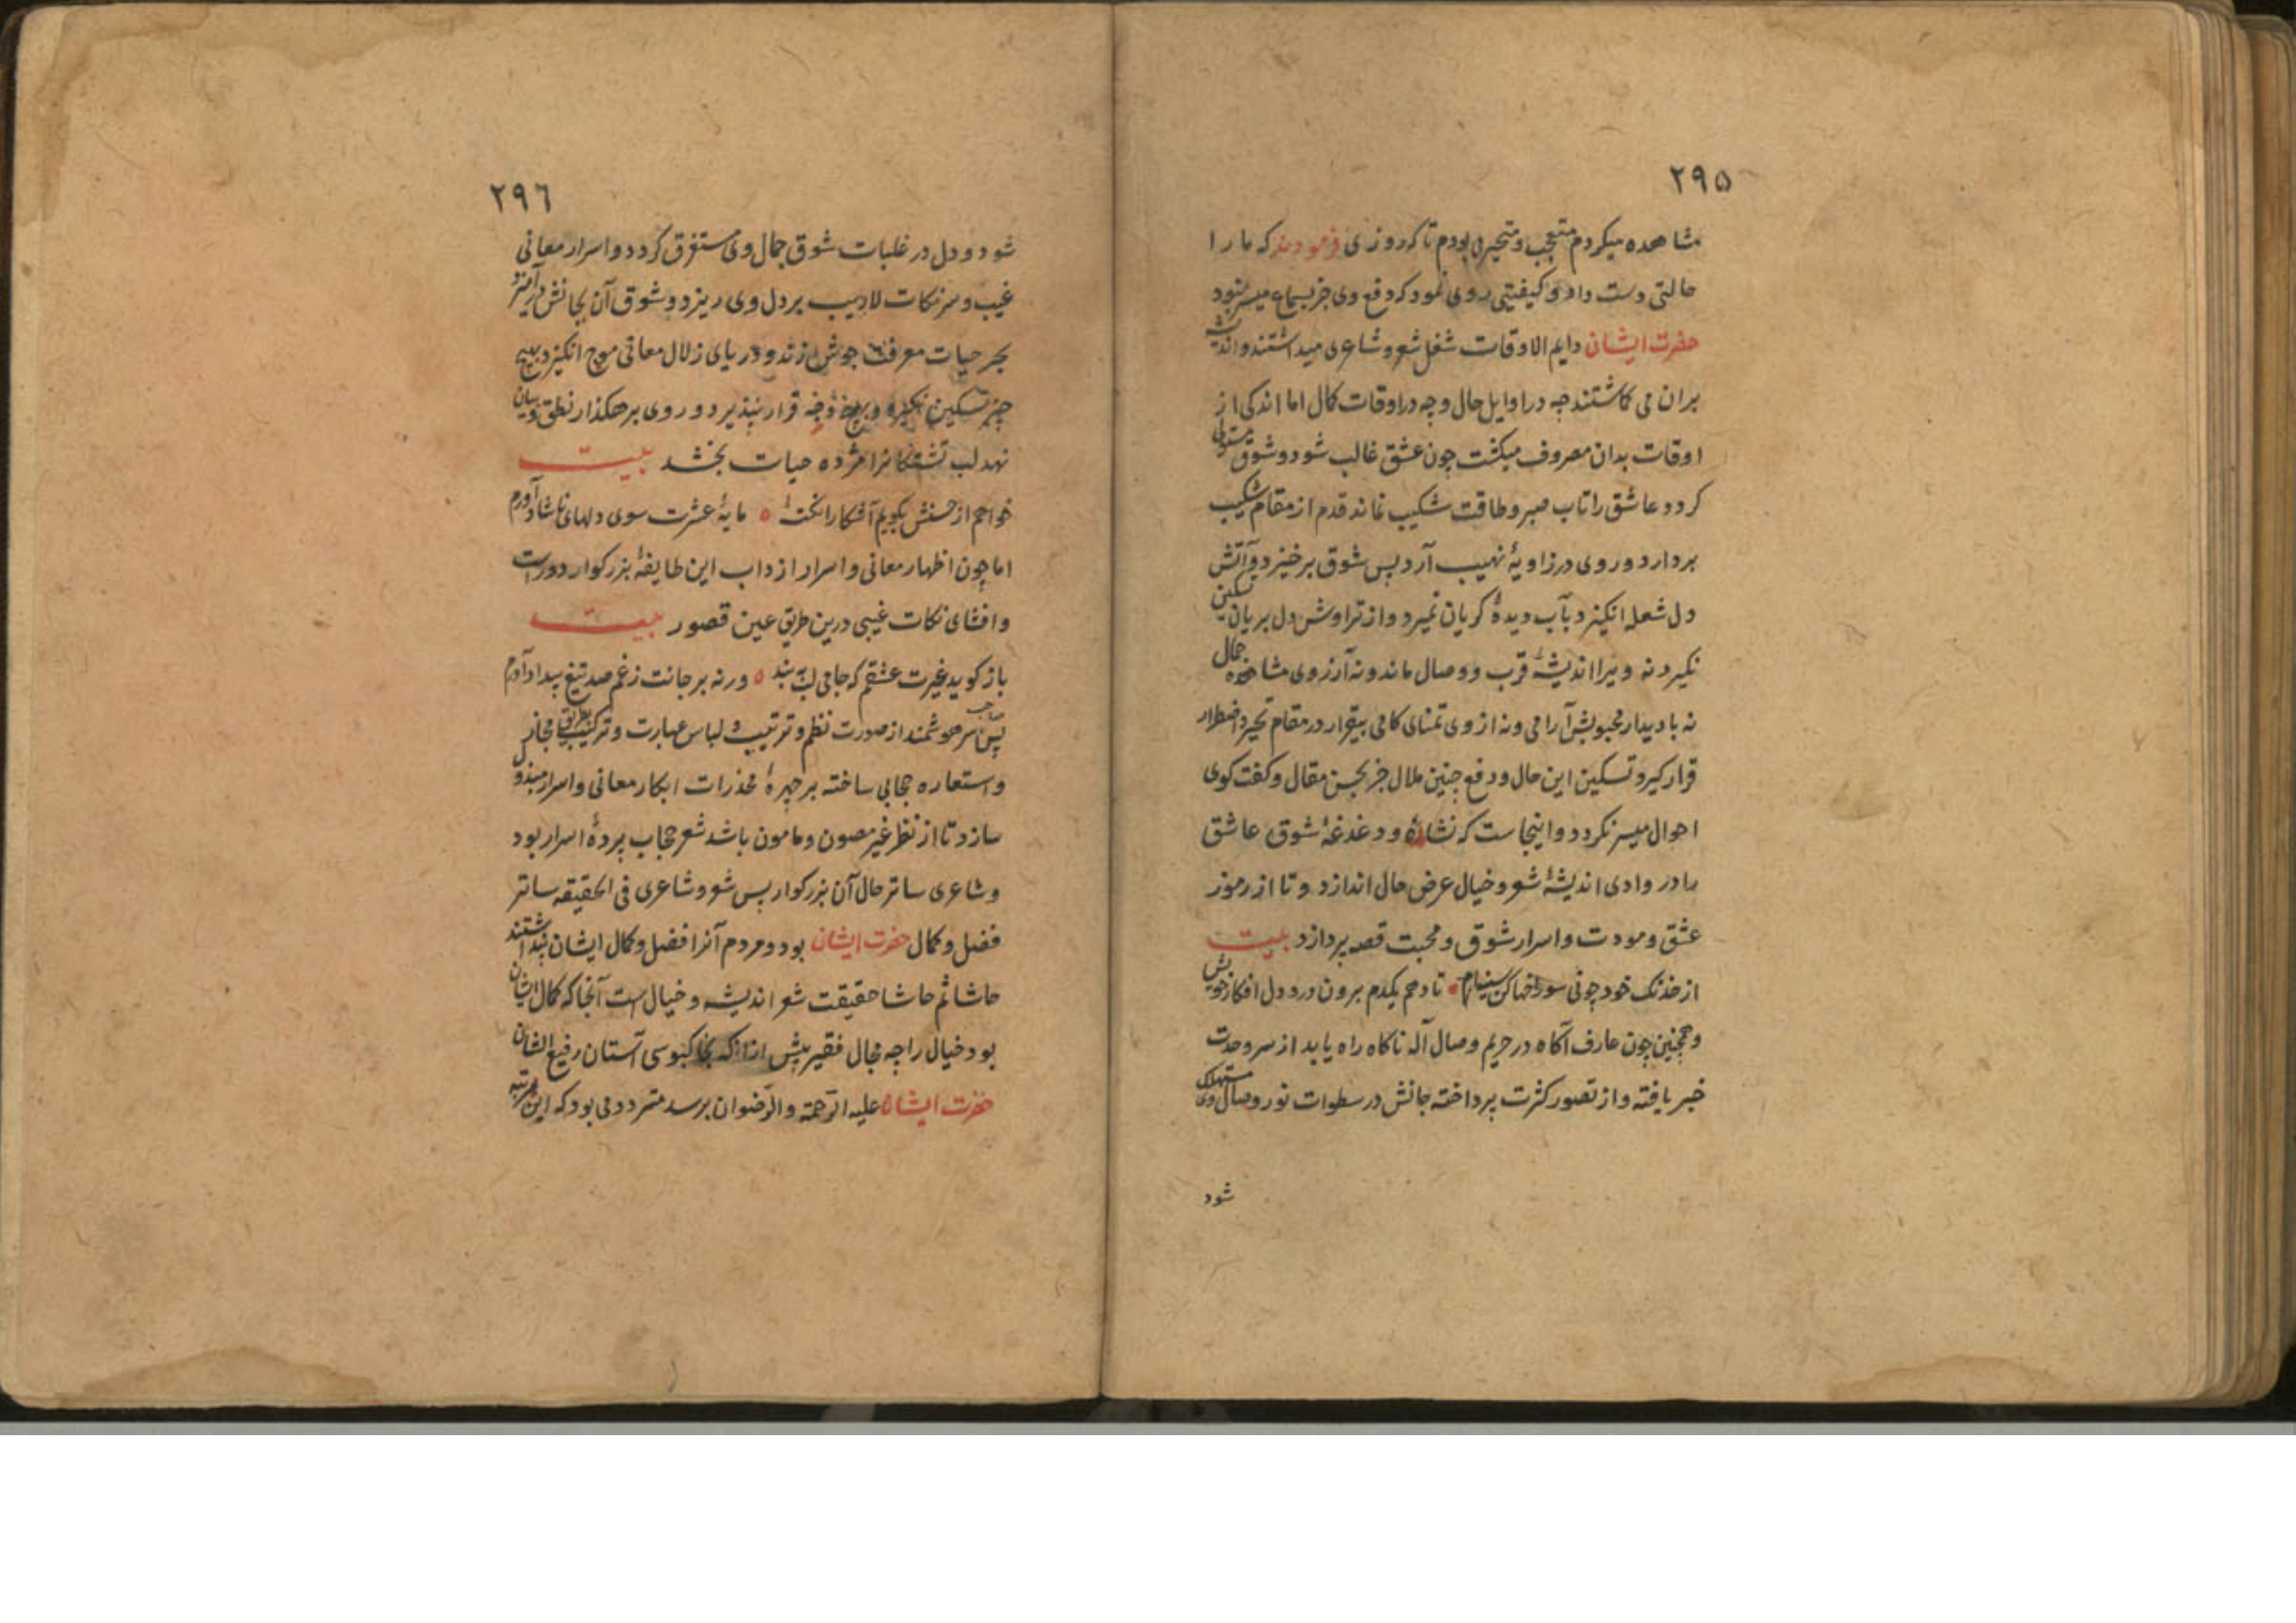 ۲۹۵
مشاهده میکردم متعجب و متحیر می بودم تا که روزی فرمودند که ما را
حالتی دست داد و کیفیتی روی نمود که دفع وی جز بسماع میسر نبود
حضرت ایشان دایم الاوقات شغل شعر و شاعری میداشتند و اندیشه
بران می کاشتند چه در اوایل حال و چه در اوقات کمال اما اندکی از
اوقات بدان مصروف میکشت چون عشق غالب شود و شوق مستولی
کردد عاشق را تاب صبر و طاقت شکیب نماند قدم از مقام شکیب
بردارد و روی در زاویهٔ نهیب آرد پس شوق برخیزد و آتش
دل شعله انکیزد بآب دیدهٔ کریان نمیرد و از تراوش دل بریان تسکین
نکیرد نه ویرا اندیشهٔ قرب و وصال ماند و نه آرزوی مشاهده جمال
نه با دیدار محبوبش آرامی و نه از وی تمنای کامی بیقرار در مقام تحیر و اضطرار
قرار کیرد تسکین این حال و دفع چنین ملال جز بحسن مقال و کفت کوی
احوال میسر نکردد و اینجاست که نشاءهٔ و دغدغهٔ شوق عاشق
را در وادی اندیشهٔ شعر و خیال عرض حال اندازد و تا از رموز
عشق و مودت و اسرار شوق و محبت قصه پردازد بیت
از خدنک خود چونی سوراخها کن سینه‌ام تا دهم یکدم برون درد دل افکار خویش
و همچنین چون عارف آکاه در حریم وصال آله ناکاه راه یابد از سر وحدت
خبر یافته و از تصور کثرت پرداخته جانش در سطوات نور وصال وی مستهلک
شود
۲۹٦
شود و دل در غلبات شوق جمال وی مستغرق کردد و اسرار معانی
غیب و سر نکات لاریب بر دل وی ریزد و شوق آن بجانش درآمیزد
بحر حیات معرفت جوش زند و دریای زلال معانی موج انکیزد بهیچ
چیز تسکین نکیرد و بهیچ وجه قرار نپذیرد و روی بر هکذار نطق و بیان
نهد لب تشنکانرا مژده حیات بخشد بیت
خواهم از حسنش بکویم آشکارا نکتهٔ مایهٔ عشرت سوی دلهای ناشاد آورم
اما چون اظهار معانی و اسرار از داب این طایفهٔ بزرکوار دورست
و افشای نکات غیبی درین طریق عین قصور بیت
باز کوید غیرت عشقم که جامی لب ببند ورنه بر جانت زغم صد تیغ بیداد آورم
پس صاحب سر هوشمند از صورت نظم و ترتیب و لباس عبارت و ترکیب بطریق مجاز
و استعاره حجابی ساخته بر چهرهٔ مخذرات ابکار معانی و اسرار مبذول
سازد تا از نظر غیر مصون و مامون باشد شعر حجاب پردهٔ اسرار بود
و شاعری ساتر حال آن بزرکوار پس شعر و شاعری فی الحقیقه ساتر
فضل و کمال حضرت ایشان بود و مردم آنرا فضل و کمال ایشان پنداشتند
حاشا ثم حاشا حقیقت شعر اندیشه و خیال است آنجا که کمال ایشان
بود خیال را چه مجال فقیر پیش ازانکه بخاکبوسی آستان رفیع الشان
حضرت ایشان علیه الرّحمة والرّضوان برسد متردد می بود که این مرتبه